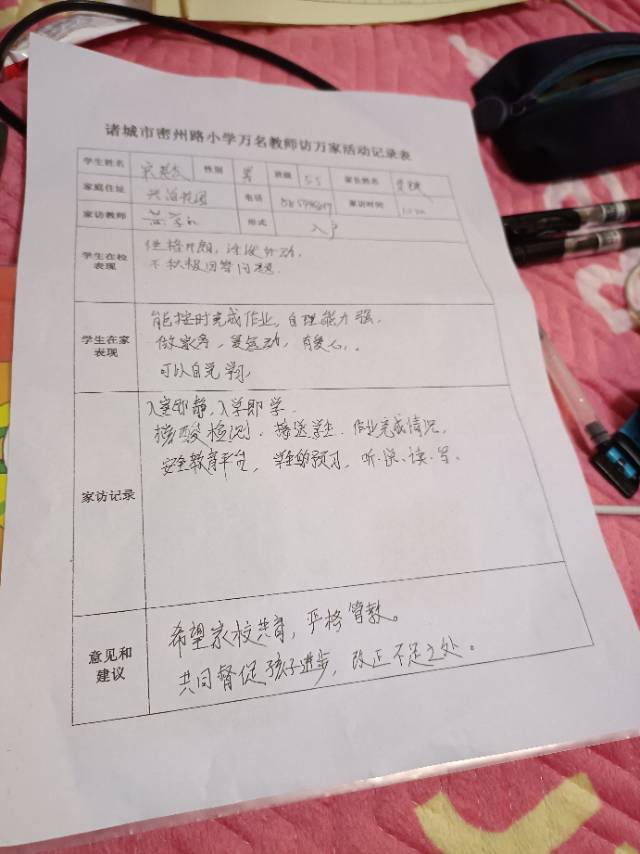 诸城市密州路小学万名教师访万家活动记录表
学生姓名 性别 男 班级 5.5 家长姓名
家庭住址 花园 电话 家访时间
家访教师 形式 入户
学生在校表现 性格开朗，活泼好动，
不积极回答问题.
学生在家表现 能按时完成作业，自理能力强，
做家务，爱运动，有爱心，.
可以自觉学习，
家访记录 入室即静，入学即学.
核酸检测．接送学生．作业完成情况，
安全教育平台，的预习，听·说·读·写、
意见和建议 希望家校共育，严格管教。
共同督促孩子进步，改正不足之处。